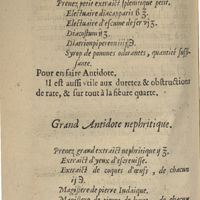 Prenez petit extraict splenetique petit.
Electuaire diacapparis
Electuaire d'escume de fer
Diacostum ij ʒ.
Diatrionpipereon
Syrop de pommes odorantes, quantité suf-
fisante.
Pour en faire Antidote.
Il est aussi vtile aux duretez & obstructions
de rate, & sur tout à la fieure quarte.
Grand Antidote nephritique.
Prenez grand extraict nephritique ij ʒ.
Extraict d'yeux d'escreuisse.
Extraict de coques d'œufs, de chacun
Magistere de pierre Iudaique.
Magistere de de chacun